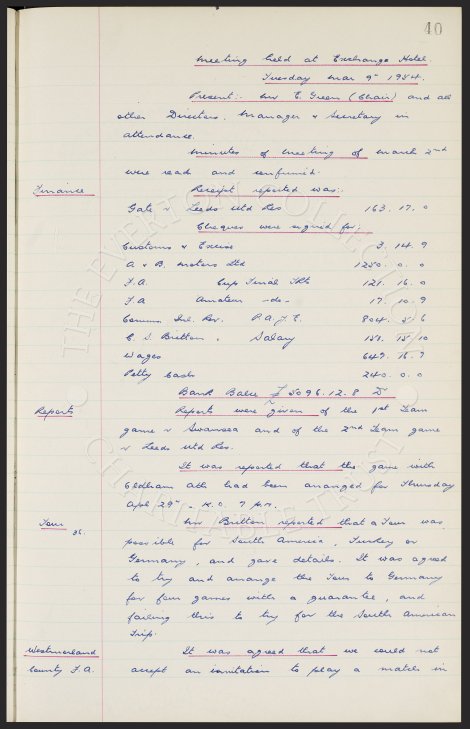 40
Meeting held at Exchange Hotel
Tuesday Mar 9th 1954.
Present:- Mr E. Green (Chair) and all
other Directors. Manager & Secretary in
attendance.
Minutes of meeting of March 2nd
were read and confirmed.
Finance Receipt reported was:-
Gate v Leeds Utd Res 163. 17. 0
Cheques were signed for:-
Customs & Excise 3. 14. 9
A & B. Motors Ltd 1250. 0. 0
F.A. Cup Final Tkts 121. 16. 0
F.A. Amateur -do- 17. 10. 9
Comms. Inl. Rev. P.A.Y.E. 804. 5. 6
C. S. Britton. Salary 151. 15. 10
Wages 649. 16. 7
Petty Cash 240. 0. 0
Bank Balce £5096. 12. 8
Reports Reports were given of the 1st Team
game v Swansea and of the 2nd Team game
v Leeds Utd Res.
It was reported that the game with
Oldham Ath had been arranged for Thursday
Apl 29th - K.O. 7 p.m.
Tour Mr Britton reported that a Tour was
possible for South America, Turkey or
Germany, and gave details. It was agreed
to try and arrange the Tour to Germany
for four games with a guarantee, and
failing this to try for the South American
Trip.
Westmorland It was agreed that we could not
County F.A. accept an invitation to play a match in
THE EVERTON COLLECTION
CHARITABLE TRUST